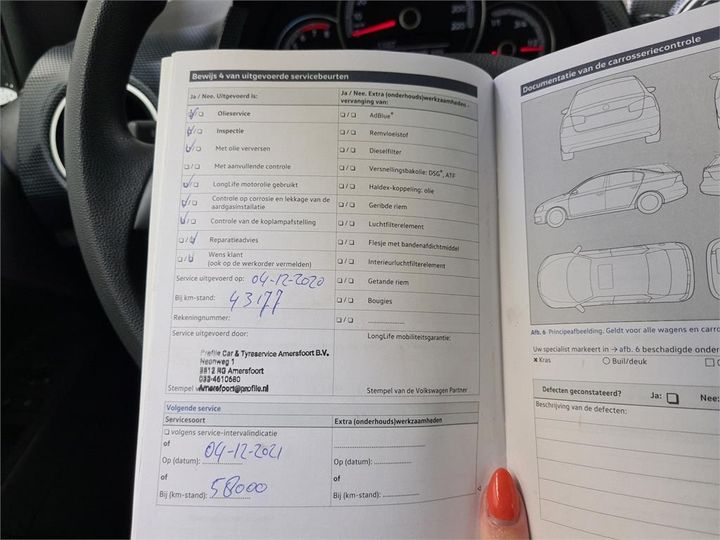 Bewijs 4 van uitgevoerde servicebeurten
Ja / Nee. Uitgevoerd is:
Olieservice
Inspectie
Met olie verversen
Met aanvullende controle
LongLife motorolie gebruikt
Controle op corrosie en lekkage van de
aardgasinstallatie
Controle van de koplampafstelling
Reparatieadvies
Wens klant
(ook op de werkorder vermelden)
Service uitgevoerd op: 04-12-2020
Bij km-stand: 43177
Rekeningnummer:
Service uitgevoerd door:
Profile Car & Tyreservice Amersfoort B.V.
Neonweg 1
3812 RG Amersfoort
033-4610680
Amersfoort@profile.nl
Stempel
Ja / Nee. Extra (onderhouds)werkzaamheden -
vervanging van:
AdBlue®
Remvloeistof
Dieselfilter
Versnellingsbakolie: DSG®, ATF
Haldex-koppeling: olie
Geribde riem
Luchtfilterelement
Flesje met bandenafdichtmiddel
Interieurluchtfilterelement
Getande riem
Bougies
LongLife mobiliteitsgarantie:
Stempel van de Volkswagen Partner
Volgende service
Servicesoort
volgens service-intervalindicatie
of
Op (datum): 04-12-2021
of
Bij (km-stand): 58000
Extra (onderhouds)werkzaamheden
Op (datum):
of
Bij (km-stand):
Documentatie van de carrosseriecontrole
Afb. 6 Principeafbeelding. Geldt voor alle wagens en carro
Uw specialist markeert in → afb. 6 beschadigde onder
x Kras O Buil/deuk
Defecten geconstateerd? Ja: Nee:
Beschrijving van de defecten: